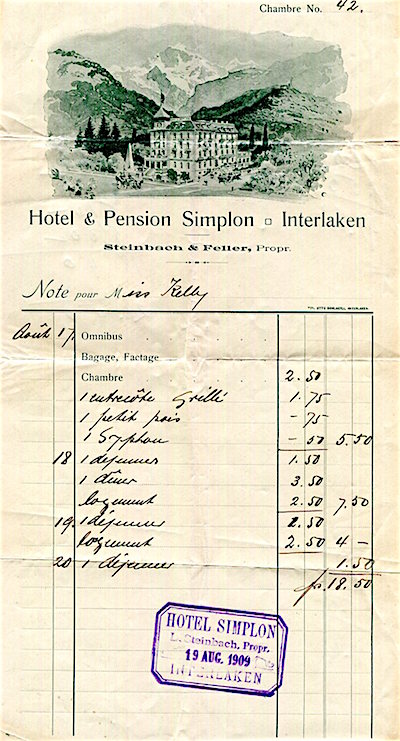 Chambre No. 42.
Hotel & Pension Simplon Interlaken
Steinbach & Feller, Propr.
Note pour Miss Kelly
Août 17. Omnibus
Bagage, Factage
Chambre 2.50
1 entrecôte Grillé 1.75
1 petit pois - 75
1 Syphon - 50 5.50
18 1 déjeuner 1.50
1 dîner 3.50
logement 2.50 7.50
19. 1 déjeuner 1.50
logement 2.50 4 -
20 1 déjeuner 1.50
fr. 18.50
HOTEL SIMPLON
L. Steinbach, Propr.
19 AUG. 1909
INTERLAKEN